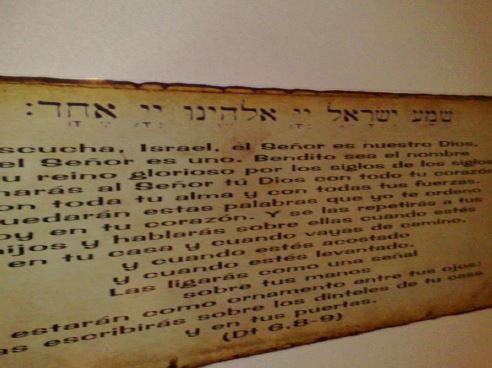 שְׁמַע יִשְׂרָאֵל יְיָ אֱלֹהֵינוּ יְיָ אֶחָד:
scucha, Israel, el Señor es nuestro Dios,
el Señor es uno. Bendito sea el nombre
u reino glorioso por los siglos de los siglos
narás al Señor tú Dios con todo tu corazón
on toda tu alma y con todas tus fuerzas.
uedarán estas palabras que yo te ordeno
oy en tu corazón. Y se las repetirás a tus
ijos y hablarás sobre ellas cuando estés
en tu casa y cuando vayas de camino,
y cuando estés acostado
y cuando estés levantado.
Las ligarás como una señal
sobre tus manos
estarán como ornamento entre tus ojos;
as escribirás sobre los dinteles de tu casa
y en tus puertas.
(Dt 6.8-9)